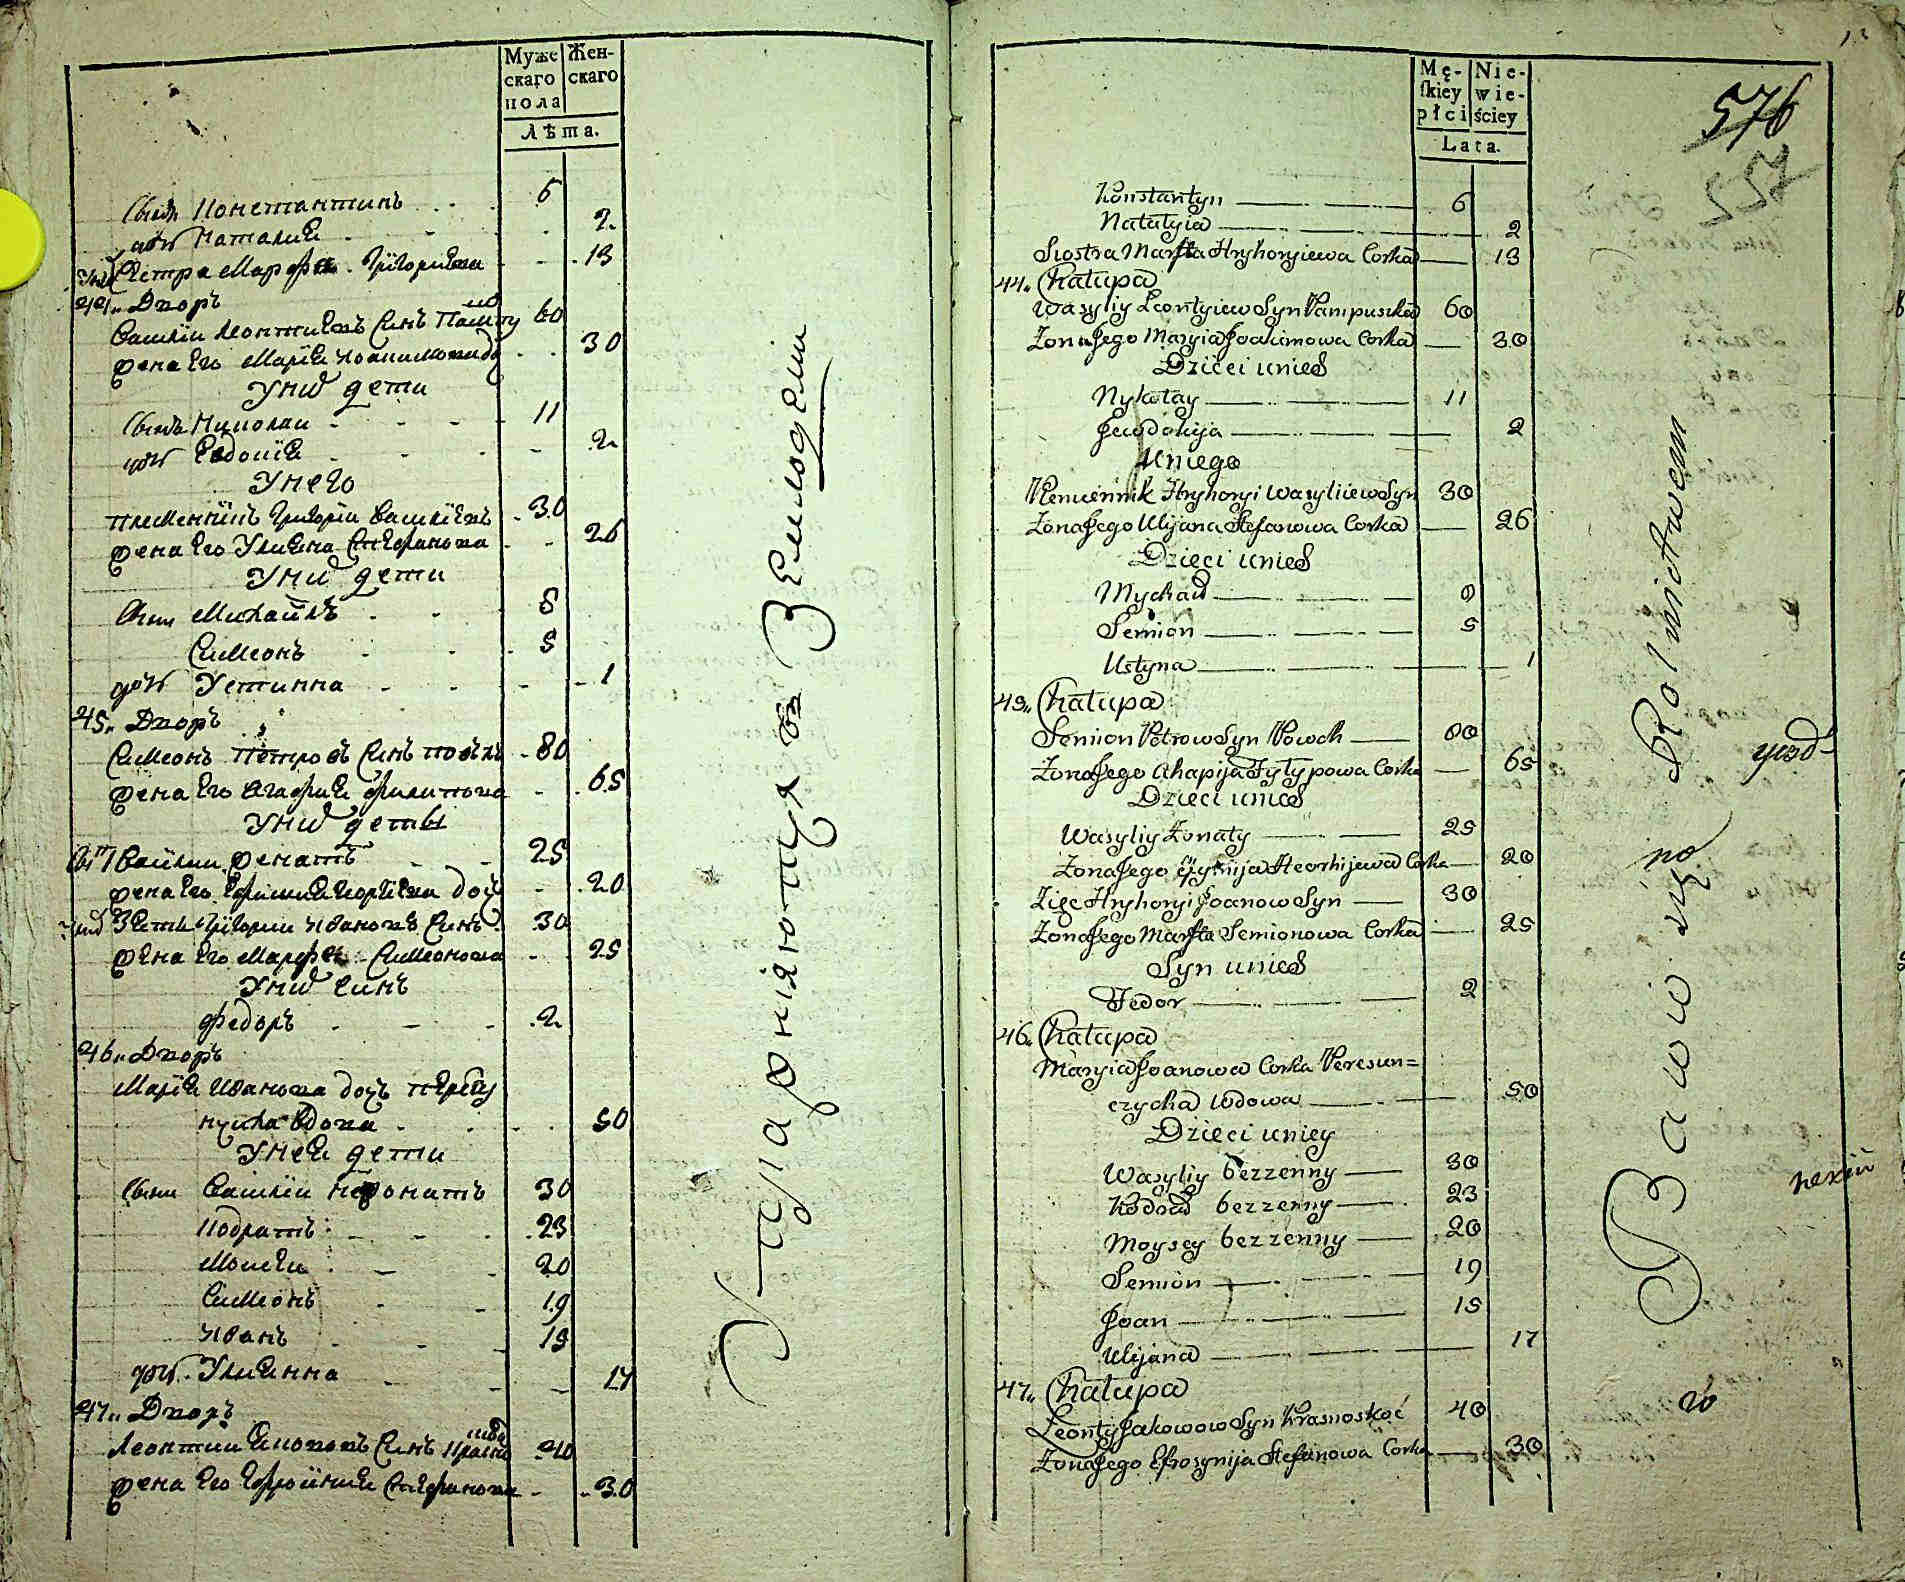 Муже
скаго
пола
Жен-
скаго
Лѣта.
Сынъ Константинъ 6
дочь Наталия 2
Сестра Марфа Григориева 13
44. Дворъ
Василии Леонтиевъ Синъ 60
жена его Мария Иоакимова 30
У них дети
Сынъ Николаи 11
дочь Евдокия 2
У него
племенникъ Григории Василиевъ 30
жена его Улияна Стефанова 26
У них дети
Сыни Михаилъ 8
Симеонъ 5
дочь Устинна 1
45. Дворъ
Симеонъ Петровъ Синъ 80
жена его Агафия Филипова 65
У них дети
Василии женатъ 25
жена его 20
Зеть Григории Ивановъ Синъ 30
жена его Марфа Симеонова 25
У них Синъ
Федоръ 2
46. Дворъ
Мария Иванова дочь
вдова 50
У неи дети
Сыни Василии нежонатъ 30
Кодратъ 23
Моисеи 20
Симеонъ 19
Иванъ 15
дочь Улиянна 17
47. Дворъ
Леонтии Якововъ Синъ 40
жена его Ефросиния Стефанова 30
Упражняются въ Земледелии
Mę-
skiey
płci
Nie-
wie-
ściey
Lata.
576
Konstantyn 6
Natalyia 2
Siostra Marfta Hryhoryiewa Corka 13
44. Chałupa
Wasyliy Leontyiew Syn Pampuszka 60
Żona Jego Maryia Joakimowa Corka 30
Dzieci unich
Nykołay 11
Jewdokija 2
Uniego
Plemiennik Hryhoryi Wasyliiew Syn 30
Żona Jego Ulijana Stefanowa Corka 26
Dzieci unich
Mychaił 8
Semion 5
Ustyna 1
45. Chałupa
Semion Petrow Syn Powch 80
Żona Jego Ahapija Fyłypowa Corka 65
Dzieci unich
Wasyliy Żonaty 25
Żona Jego Heorhijewa Corka 20
Zięć Hryhoryi Joanow Syn 30
Żona Jego Marfta Semionowa Corka 25
Syn unich
Fedor 2
46. Chałupa
Maryia Joanowa Corka Peresun=
czycha Wdowa 50
Dzieci uniey
Wasyliy bezżenny 30
Kodrad bezżenny 23
Moysey bezżenny 20
Semion 19
Joan 15
Ulijana 17
47. Chałupa
Leonty Jakowow Syn Krasnoskoć 40
Żona Jego Efrosynija Stefanowa Corka 30
Bawią się Rolnictwem